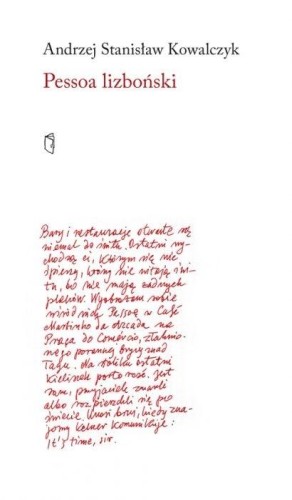 Andrzej Stanisław Kowalczyk
Pessoa lizboński
Bary i restauracje otwarte są
niemal do świtu. Ostatni wy-
chodzą ci, którym się nie
śpieszy, którzy nie witają świ-
tu, bo nie mają żadnych
planów. Wyobrażam sobie
wśród nich Pessoę w Café
Martinho da Arcada na
Praça do Comércio,
nego poranną bryzą znad
Tagu. Na stoliku ostatni
kieliszek porto rosé. Jest
sam, przyjaciele zmarli
albo rozpierzchli się po
świecie. Musi brać, kiedy zna-
jomy kelner komunikuje:
It's time, sir.